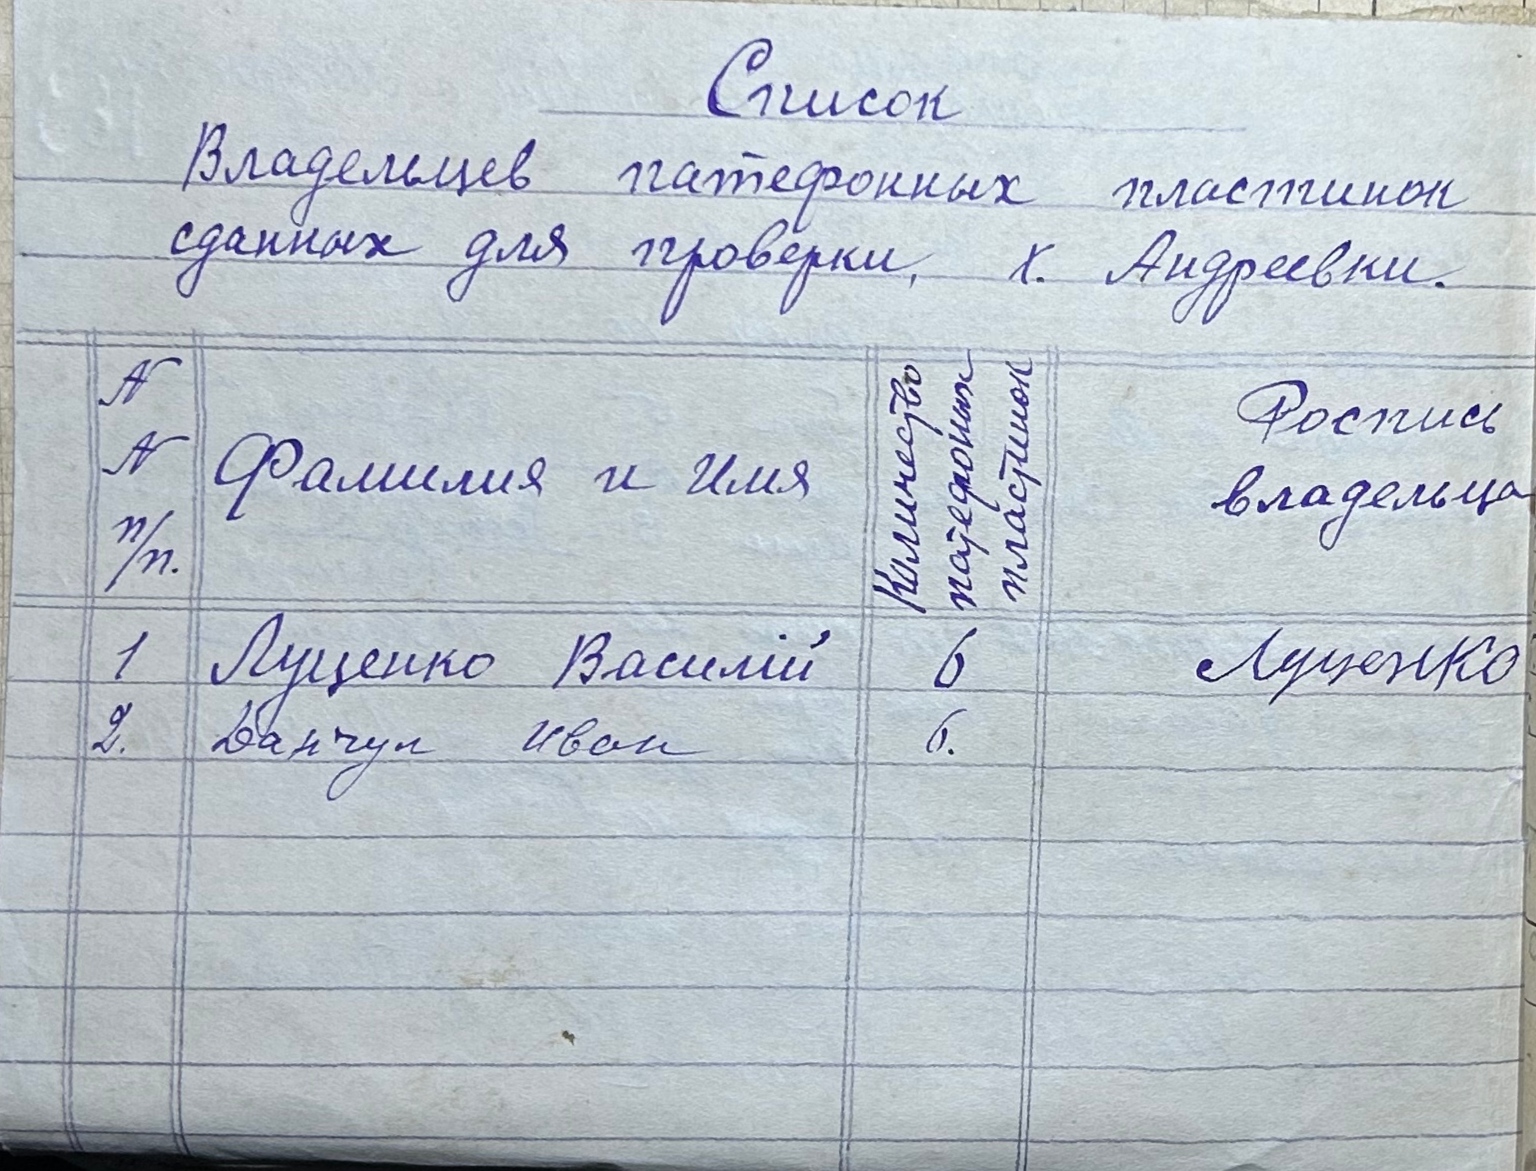 Список
Владельцев патефонных пластинок
сданных для проверки, х. Андреевки.
N
N
п/п.
Фамилия и Имя
Количество
патефонных
пластинок
Роспись
владельца
1 Луценко Василій 6 Луценко
2. Данчул Иван 6.